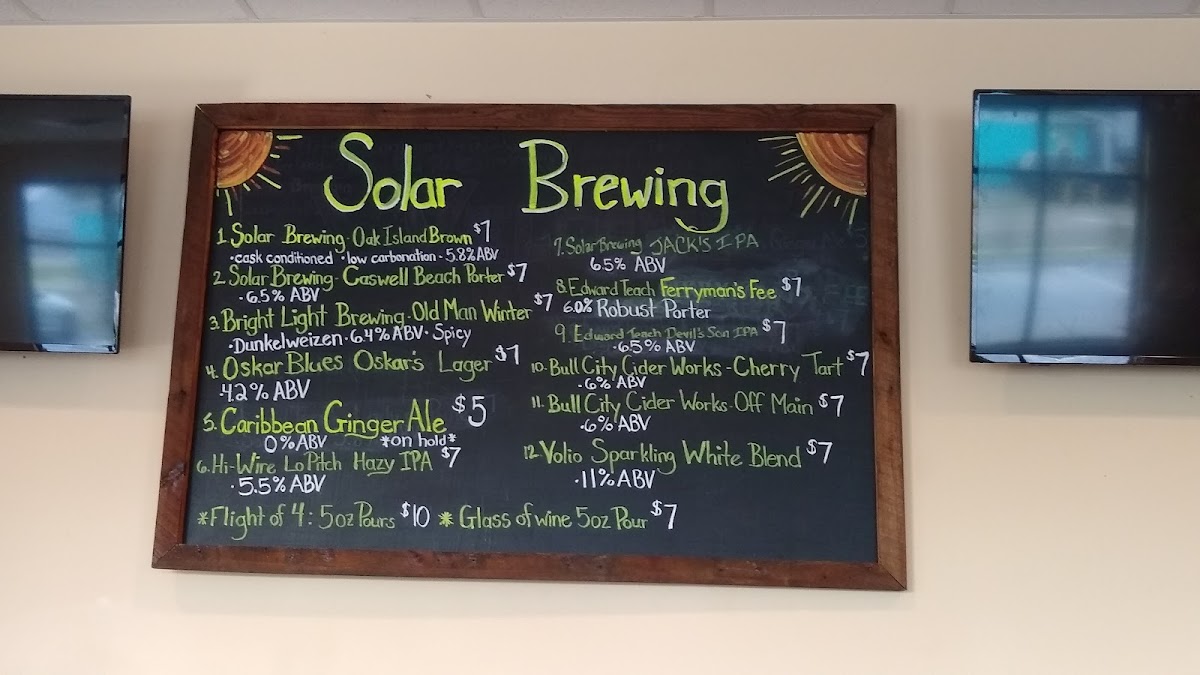 Solar Brewing
1. Solar Brewing - Oak Island Brown $7
• cask conditioned • low carbonation - 5.8% ABV
2. Solar Brewing - Caswell Beach Porter $7
- 6.5% ABV
3. Bright Light Brewing - Old Man Winter $7
• Dunkelweizen - 6.4% ABV • Spicy
4. Oskar Blues Oskar's Lager $7
- 4.2% ABV
5. Caribbean Ginger Ale $5
0% ABV *on hold*
6. Hi-Wire Lo Pitch Hazy IPA $7
• 5.5% ABV
7. Solar Brewing JACK'S IPA
6.5% ABV
8. Edward Teach Ferryman's Fee $7
6.0% Robust Porter
9. Edward Teach Devil's Son IPA $7
- 6.5% ABV
10. Bull City Cider Works - Cherry Tart $7
- 6% ABV
11. Bull City Cider Works - Off Main $7
- 6% ABV
12. Volio Sparkling White Blend $7
- 11% ABV
* Flight of 4: 5oz Pours $10 * Glass of wine 5oz Pour $7